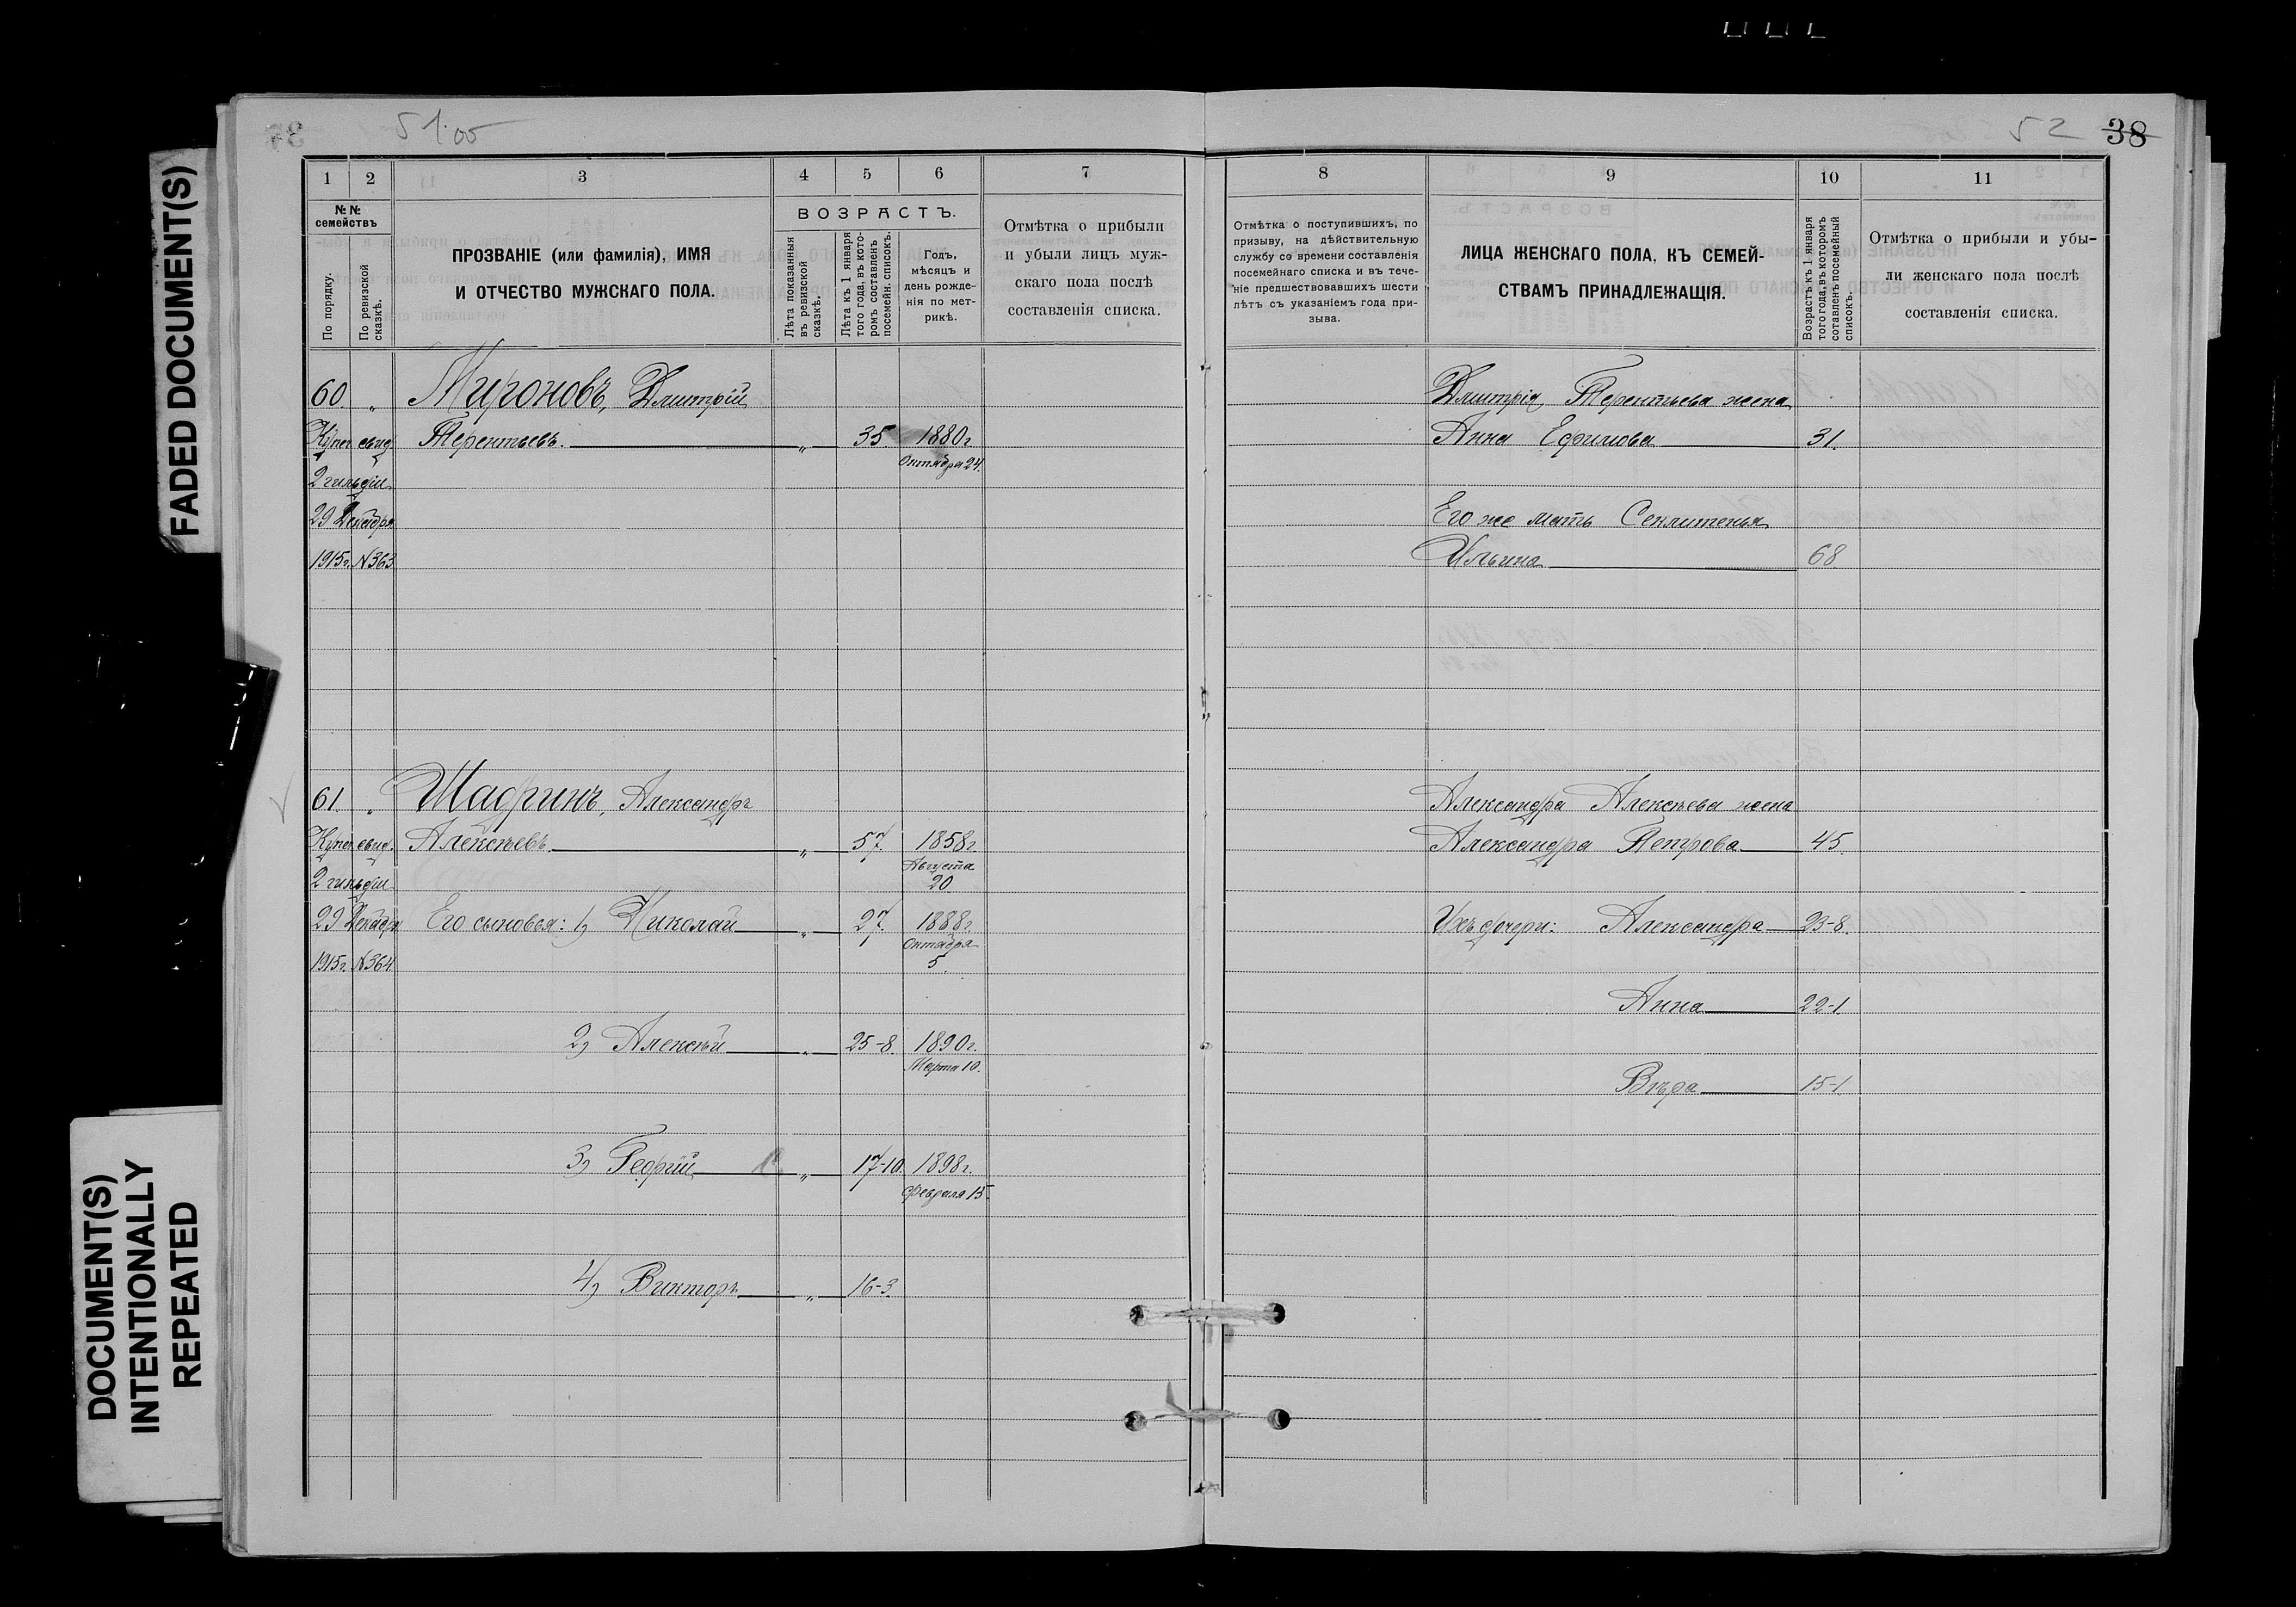 FADED DOCUMENT(S)
DOCUMENT(S)
INTENTIONALLY
REPEATED
51 об
1 2 3 4 5 6 7
№№ семействъ
По порядку.
По ревизской сказкѣ.
ПРОЗВАНІЕ (или фамилія), ИМЯ
И ОТЧЕСТВО МУЖСКАГО ПОЛА.
ВОЗРАСТЪ.
Лѣта показанныя въ ревизской сказкѣ.
Лѣта къ 1 января того года, въ которомъ составленъ посемейн. списокъ.
Годъ,
мѣсяцъ и
день рожде-
нія по мет-
рикѣ.
Отмѣтка о прибыли
и убыли лицъ муж-
скаго пола послѣ
составленія списка.
60. „ Мироновъ, Дмитрій
Купеч. свид. Терентьевъ. „ 35 1880 г.
2 гильдіи Октября 24.
29 Декабря
1915 г. N 363
61. „ Шадринъ, Александръ
Купеч. свид. Алексѣевъ. „ 57. 1858 г.
Августа
2 гильдіи 20.
29 Декабря Его сыновья: 1) Николай „ 27. 1888 г.
Октября
1915 г. N 364 5.
2) Алексѣй „ 25-8. 1890 г.
Марта 10.
3) Георгій „ 17-10. 1898 г.
Февраля 15.
4) Викторъ „ 16-3.
52 38
8 9 10 11
Отмѣтка о поступившихъ, по
призыву, на дѣйствительную
службу со времени составленія
посемейнаго списка и въ тече-
ніе предшествовавшихъ шести
лѣтъ съ указаніемъ года при-
зыва.
ЛИЦА ЖЕНСКАГО ПОЛА, КЪ СЕМЕЙ-
СТВАМЪ ПРИНАДЛЕЖАЩІЯ.
Возрастъ къ 1 января
того года, въ которомъ
составленъ посемейный
списокъ.
Отмѣтка о прибыли и убы-
ли женскаго пола послѣ
составленія списка.
Дмитрія Терентьева жена
Анна Ефимова 31.
Его же мать Секлитенья
Ильина 68
Александра Алексѣева жена
Александра Петрова 45.
Ихъ дочери: Александра 23-8.
Анна 22-1.
Вѣра 15-1